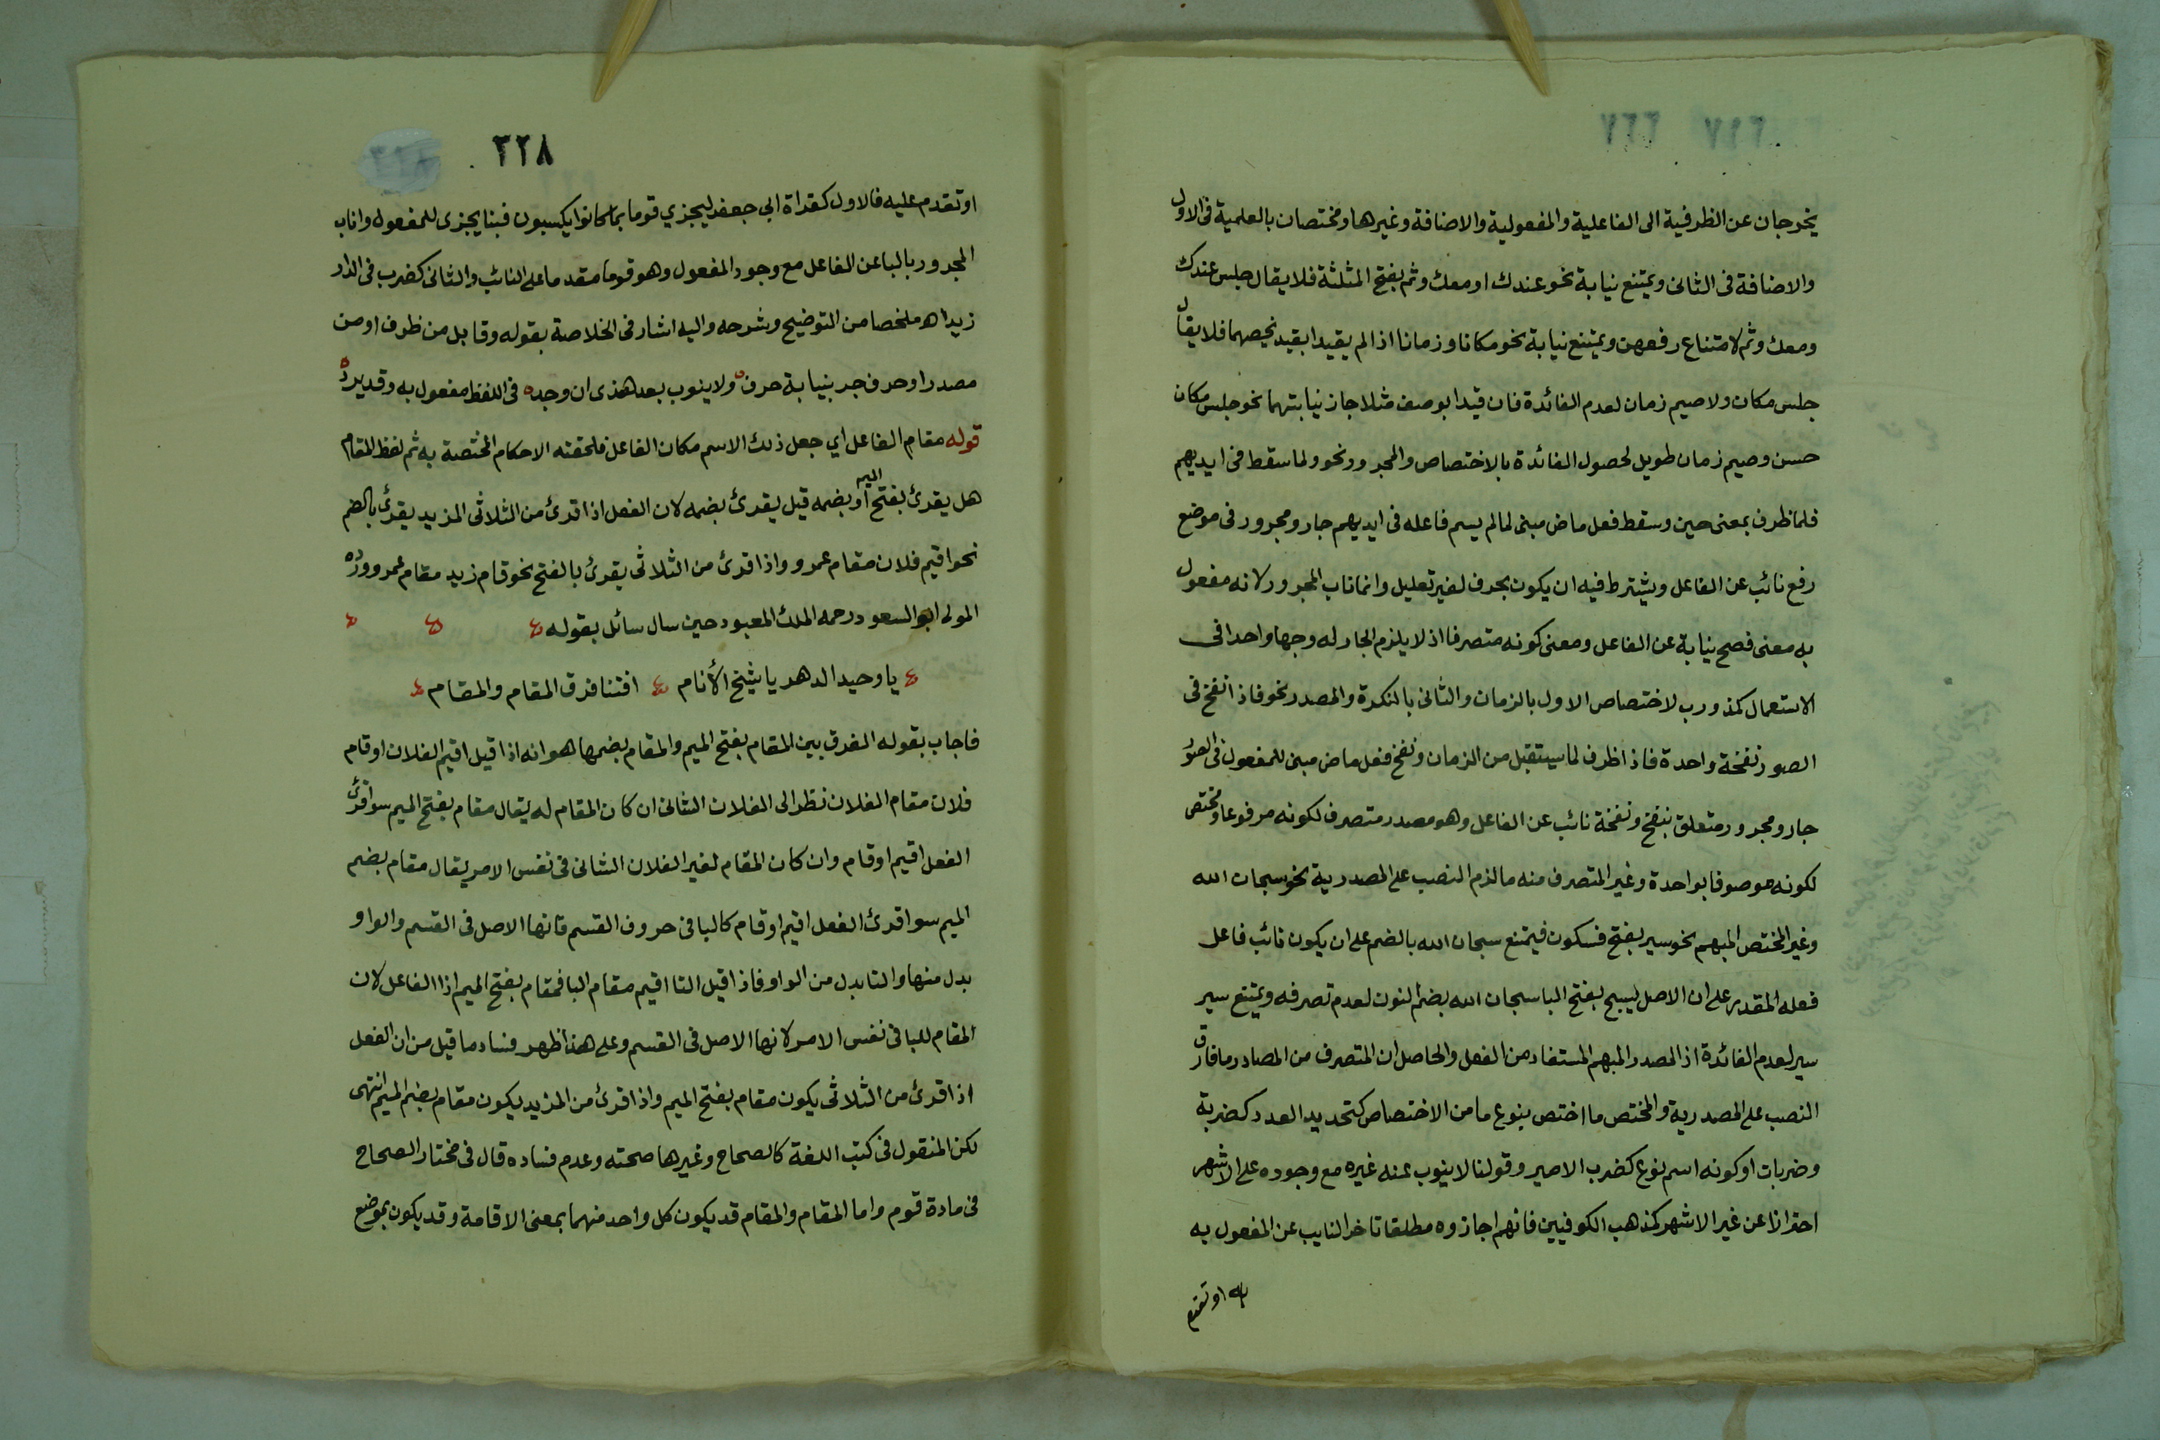 يخرجان عن الظرفية الى الفاعلية والمفعولية والاضافة وغيرها ومختصان بالعلمية فى الاول
والاضافة فى الثانى ويمتنع نيابة نحو عندك او معك وثم بفتح المثلثة فلا يقال جلس عندك
ومعك وثم لامتناع رفعهن ويمتنع نيابة نحو مكانا وزمانا اذا لم يقيدا بقيد يخصهما فلا يقال
جلس مكان ولا صيم زمان لعدم الفائدة فان قيدا بوصف مثلا جاز نيابتهما نحو جلس مكان
حسن وصيم زمان طويل لحصول الفائدة بالاختصاص والمجرور نحو ولما سقط فى ايديهم
فلما ظرف بمعنى حين وسقط فعل ماض مبنى لما لم يسم فاعله فى ايديهم جار ومجرور فى موضع
رفع نائب عن الفاعل ويشترط فيه ان يكون بحرف لغير تعليل وانما ناب المجرور لانه مفعول
به معنى فصح نيابة عن الفاعل ومعنى كونه متصرفا اذ لا يلزم الجار له وجها واحدا فى
الاستعمال كمذ ورب لاختصاص الاول بالزمان والثانى بالنكرة والمصدر نحو فاذا نفخ فى
الصور نفخة واحدة فاذا ظرف لما يستقبل من الزمان ونفخ فعل ماض مبنى للمفعول فى الصور
جار ومجرور متعلق بنفخ ونفخة نائب عن الفاعل وهو مصدر متصرف لكونه مرفوعا ومختص
لكونه موصوفا بواحدة وغير المتصرف منه ما لزم النصب على المصدرية نحو سبحان الله
وغير المختص المبهم نحو سير بفتح فسكون فيمتنع سبحان الله بالضم على ان يكون نائب فاعل
فعله المقدر على ان الاصل يسبح بفتح البا سبحان الله بضم النون لعدم تصرفه ويمتنع سير
سير لعدم الفائدة اذ المصدر المبهم المستفاد من الفعل والحاصل ان المتصرف من المصادر ما فارق
النصب على المصدرية والمختص ما اختص بنوع ما من الاختصاص كتحديد العدد كضربة
وضربات او كونه اسم نوع كضرب الامير وقولنا لا ينوب عنه غيره مع وجوده على الاشهر
احترازا عن غير الاشهر كمذهب الكوفيين فانهم اجازوه مطلقا تاخر النايب عن المفعول به
او تقدم
٣٢٨
او تقدم عليه فالاول كقراة ابى جعفر ليجزي قوما بما كانوا يكسبون فبنا يجزى للمفعول واناب
المجرور بالبا عن الفاعل مع وجود المفعول وهو قوما مقدما على النائب والثانى كضرب فى الدار
زيدا اه ملخصا من التوضيح وشرحه واليه اشار فى الخلاصة بقوله وقابل من ظرف او من
مصدر او حرف جر بنيابة حرف ولا ينوب بعد هذى ان وجد فى اللفظ مفعول به وقد يرد
قوله مقام الفاعل اي جعل ذلك الاسم مكان الفاعل فلحقته الاحكام المختصة به ثم لفظ المقام
هل يقرئ بفتح الميم او بضمه قيل يقرئ بضمه لان الفعل اذا قرئ من الثلاثى المزيد يقرئ بالضم
نحو اقيم فلان مقام عمرو واذا قرئ من الثلاثى يقرئ بالفتح نحو قام زيد مقام عمرو ورده
المولى ابو السعود رحمه الملك المعبود حين سال سائل بقوله
يا وحيد الدهر يا شيخ الأنام افتنا فرق المقام والمقام
فاجاب بقوله الفرق بين المقام بفتح الميم والمقام بضمها هو انه اذا قيل اقيم الفلان او قام
فلان مقام الفلان نظر الى الفلان الثانى ان كان المقام له يقال مقام بفتح الميم سوا قرئ
الفعل اقيم او قام وان كان المقام لغير الفلان الثانى فى نفس الامر يقال مقام بضم
الميم سوا قرئ الفعل اقيم او قام كالبا فى حروف القسم فانها الاصل فى القسم والواو
بدل منها والتا بدل من الواو فاذا قيل التا اقيم مقام البا فمقام بفتح الميم اذا الفاعل لان
المقام للبا فى نفس الامر لانها الاصل فى القسم وعلى هذا ظهر فساد ما قيل من ان الفعل
اذا قرئ من الثلاثى يكون مقام بفتح الميم واذا قرئ من المزيد يكون مقام بضم الميم انتهى
لكن المنقول فى كتب اللغة كالصحاح وغيرها صحته وعدم فساده قال فى مختار الصحاح
فى مادة قوم واما المقام والمقام قد يكون كل واحد منهما بمعنى الاقامة وقد يكون بموضع